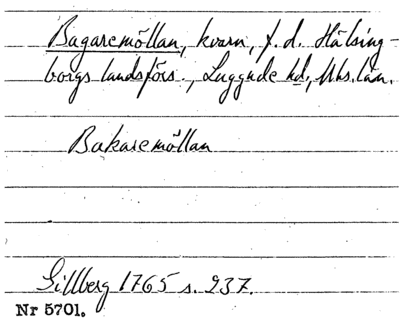 Bagaremöllan, kvarn, f. d. Hälsing-
borgs landsförs., Luggude hd, Mhs. län.
Bakaremöllan
Gillberg 1765 s. 237.
Nr 5701.